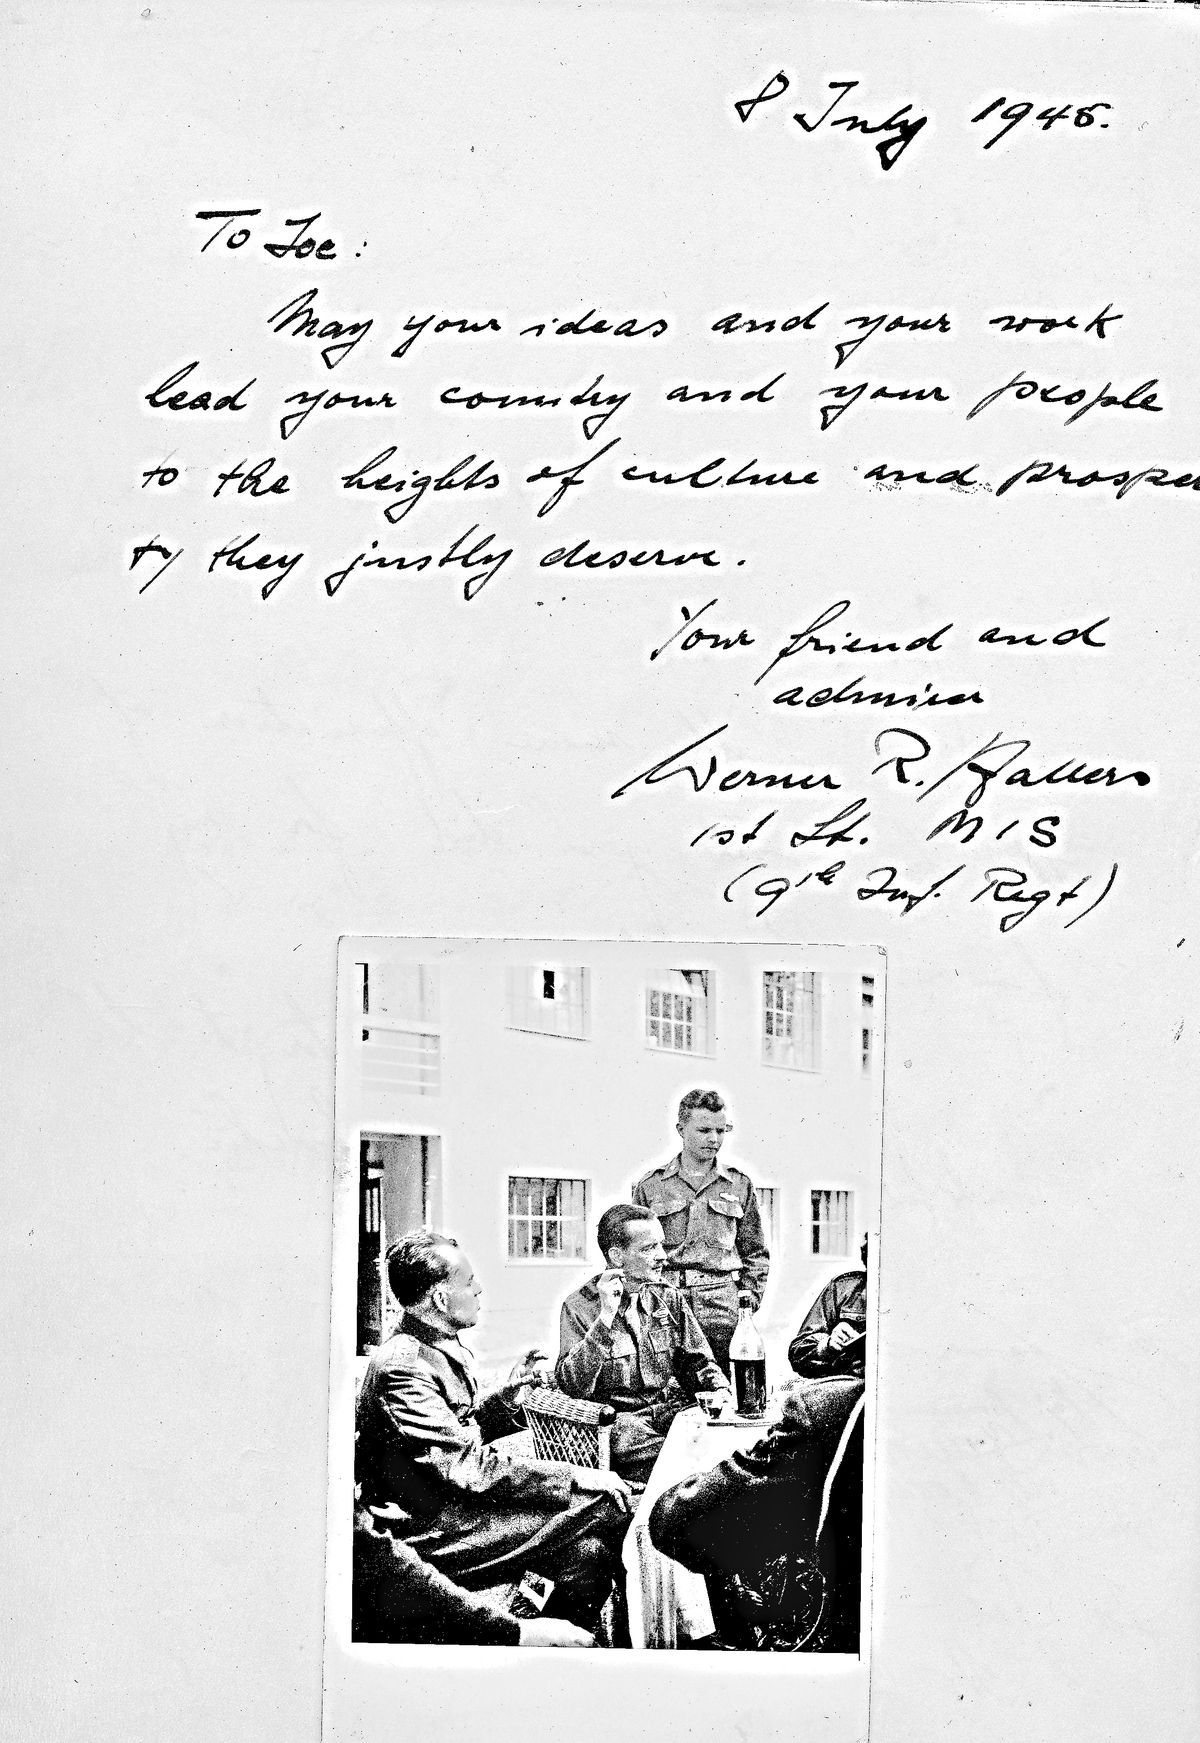 8 July 1945.
To Joe:
May your ideas and your work
lead your country and your people
to the heights of culture and prosper
ty they justly deserve.
Your friend and
admirer
Werner R.
1st Lt. MIS
(9th Inf. Regt)